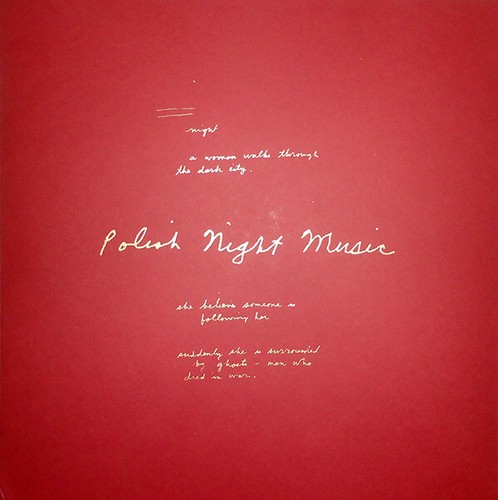 night
a woman walks through
the dark city.
Polish Night Music
she believes someone is
following her
suddenly she is surrounded
by ghosts - men who
died in war.